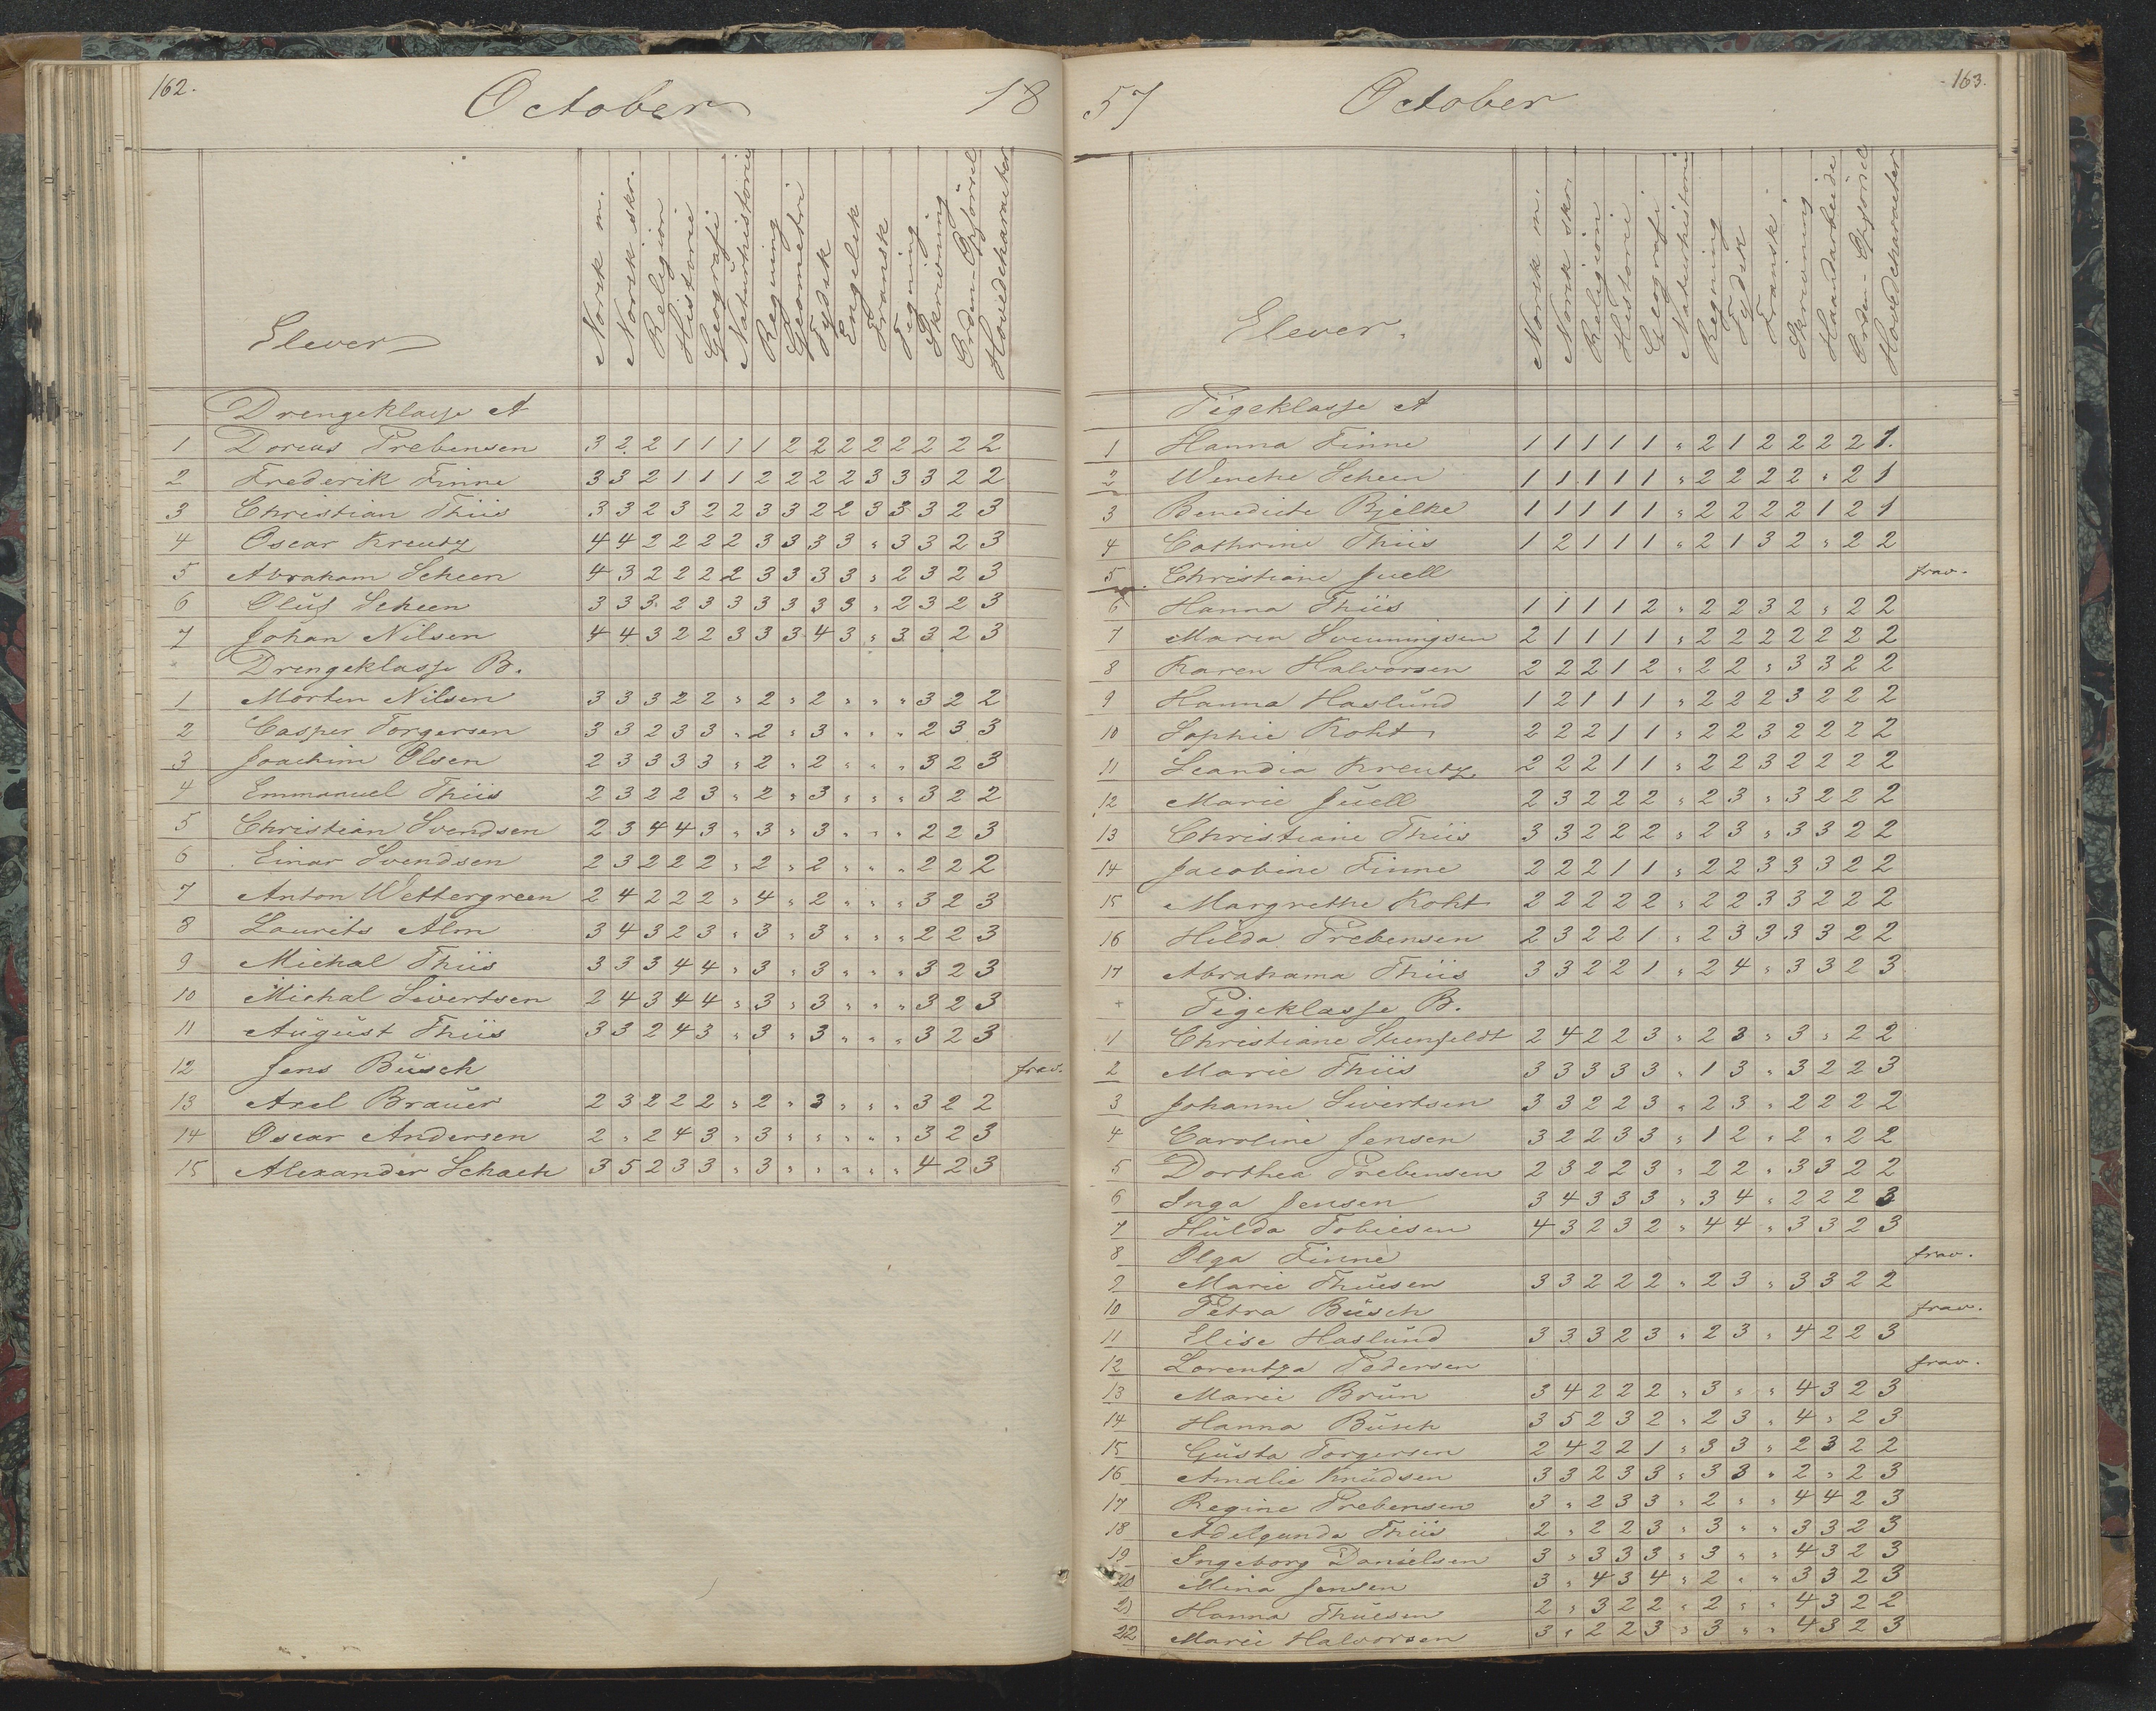 162.
October
18
Elever
Norsk m.
Norsk skr.
Religion
Historie
Geografi
Naturhistorie
Regning
Geometri
Tydsk
Engelsk
Fransk
Tegning
Skrivning
Orden - Opførsel
Hovedcharacter
Drengeklasse A
1 Dorcus Prebensen 3 2 2 1 1 1 1 2 2 2 2 2 2 2 2
2 Frederik Finne 3 3 2 1 1 1 2 2 2 2 3 3 3 2 2
3 Christian Thiis 3 3 2 3 2 2 3 3 2 2 3 3 3 2 3
4 Oscar Kreutz 4 4 2 2 2 2 3 3 3 3 " 3 3 2 3
5 Abraham Scheen 4 3 2 2 2 2 3 3 3 3 " 2 3 2 3
6 Oluf Scheen 3 3 3 2 3 3 3 3 3 3 " 2 3 2 3
7 Johan Nilsen 4 4 3 2 2 3 3 3 4 3 " 3 3 2 3
Drengeklasse B.
1 Morten Nilsen 3 3 3 2 2 " 2 " 2 " " " 3 2 2
2 Casper Torgersen 3 3 2 3 3 " 2 " 3 " " " 2 3 3
3 Joachim Olsen 2 3 3 3 3 " 2 " 2 " " " 3 2 3
4 Emmanuel Thiis 2 3 2 2 3 " 2 " 3 " " " 3 2 2
5 Christian Svendsen 2 3 4 4 3 " 3 " 3 " " " 2 2 3
6 Einar Svendsen 2 3 2 2 2 " 2 " 2 " " " 2 2 2
7 Anton Wettergreen 2 4 2 2 2 " 4 " 2 " " " 3 2 3
8 Laurits Alm 3 4 3 2 3 " 3 " 3 " " " 2 2 3
9 Michal Thiis 3 3 3 4 4 " 3 " 3 " " " 3 2 3
10 Michal Sivertsen 2 4 3 4 4 " 3 " 3 " " " 3 2 3
11 August Thiis 3 3 2 4 3 " 3 " 3 " " " 3 2 3
12 Jens Busch frav.
13 Axel Brauer 2 3 2 2 2 " 2 " 3 " " " 3 2 2
14 Oscar Andersen 2 " 2 4 3 " 3 " " " " " 3 2 3
15 Alexander Schach 3 5 2 3 3 " 3 " " " " " 4 2 3
57
October
163.
Elever.
Norsk m.
Norsk skr.
Religion
Historie
Geografi
Naturhistorie
Regning
Tydsk
Fransk
Skrivning
Haandarbeide
Orden - Opførsel
Hovedcharacter
Pigeklasse A
1 Hanna Finne 1 1 1 1 1 " 2 1 2 2 2 2 1.
2 Wenche Scheen 1 1 1 1 1 " 2 2 2 2 " 2 1
3 Benedicte Bjelke 1 1 1 1 1 " 2 2 2 2 1 2 1
4 Cathrine Thiis 1 2 1 1 1 " 2 1 3 2 " 2 2
5 Christiane Juell frav.
6 Hanna Thiis 1 1 1 1 2 " 2 2 3 2 " 2 2
7 Maren Svenningsen 2 1 1 1 1 " 2 2 2 2 2 2 2
8 Karen Halvorsen 2 2 2 1 2 " 2 2 " 3 3 2 2
9 Hanna Haslund 1 2 1 1 1 " 2 2 2 3 2 2 2
10 Sophie Koht 2 2 2 1 1 " 2 2 3 2 2 2 2
11 Scandia Kreutz 2 2 2 1 1 " 2 2 3 2 2 2 2
12 Marie Juell 2 3 2 2 2 " 2 3 " 3 2 2 2
13 Christiane Thiis 3 3 2 2 2 " 2 3 " 3 3 2 2
14 Jacobine Finne 2 2 2 1 1 " 2 2 3 3 3 2 2
15 Margrethe Koht 2 2 2 2 2 " 2 2 3 3 2 2 2
16 Hilda Prebensen 2 3 2 2 1 " 2 3 3 3 3 2 2
17 Abrahama Thiis 3 3 2 2 1 " 2 4 " 3 3 2 3
Pigeklasse B.
1 Christiane Steenfeldt 2 4 2 2 3 " 2 3 " 3 " 2 2
2 Marie Thiis 3 3 3 3 3 " 1 3 " 3 2 2 3
3 Johanne Sivertsen 3 3 2 2 3 " 2 3 " 2 2 2 2
4 Caroline Jensen 3 2 2 3 3 " 1 2 " 2 " 2 2
5 Dorthea Prebensen 2 3 2 2 3 " 2 2 " 3 3 2 2
6 Inga Jensen 3 4 3 3 3 " 3 4 " 2 2 2 3
7 Hulda Tobiesen 4 3 2 3 2 " 4 4 " 3 3 2 3
8 Olga Finne frav.
9 Marie Thuesen 3 3 2 2 2 " 2 3 " 3 3 2 2
10 Petra Busch frav.
11 Elise Haslund 3 3 3 2 3 " 2 3 " 4 2 2 3
12 Lorentza Pedersen frav.
13 Marie Brun 3 4 2 2 2 " 3 " " 4 3 2 3
14 Hanna Busch 3 5 2 3 2 " 2 3 " 4 " 2 3
15 Gusta Torgersen 2 4 2 2 1 " 3 3 " 2 3 2 2
16 Amalie Knudsen 3 3 2 3 3 " 3 3 " 2 " 2 3
17 Regine Prebensen 3 " 2 3 3 " 2 " " 4 4 2 3
18 Adelgunda Thiis 2 " 2 2 3 " 3 " " 3 3 2 3
19 Ingeborg Danielsen 3 " 3 3 3 " 3 " " 4 3 2 3
20 Mina Jensen 3 " 4 3 4 " 2 " " 3 3 2 3
21 Hanna Thuesen 2 " 3 2 2 " 2 " " 4 3 2 2
22 Marie Halvorsen 3 " 2 2 3 " 3 " " 4 3 2 3